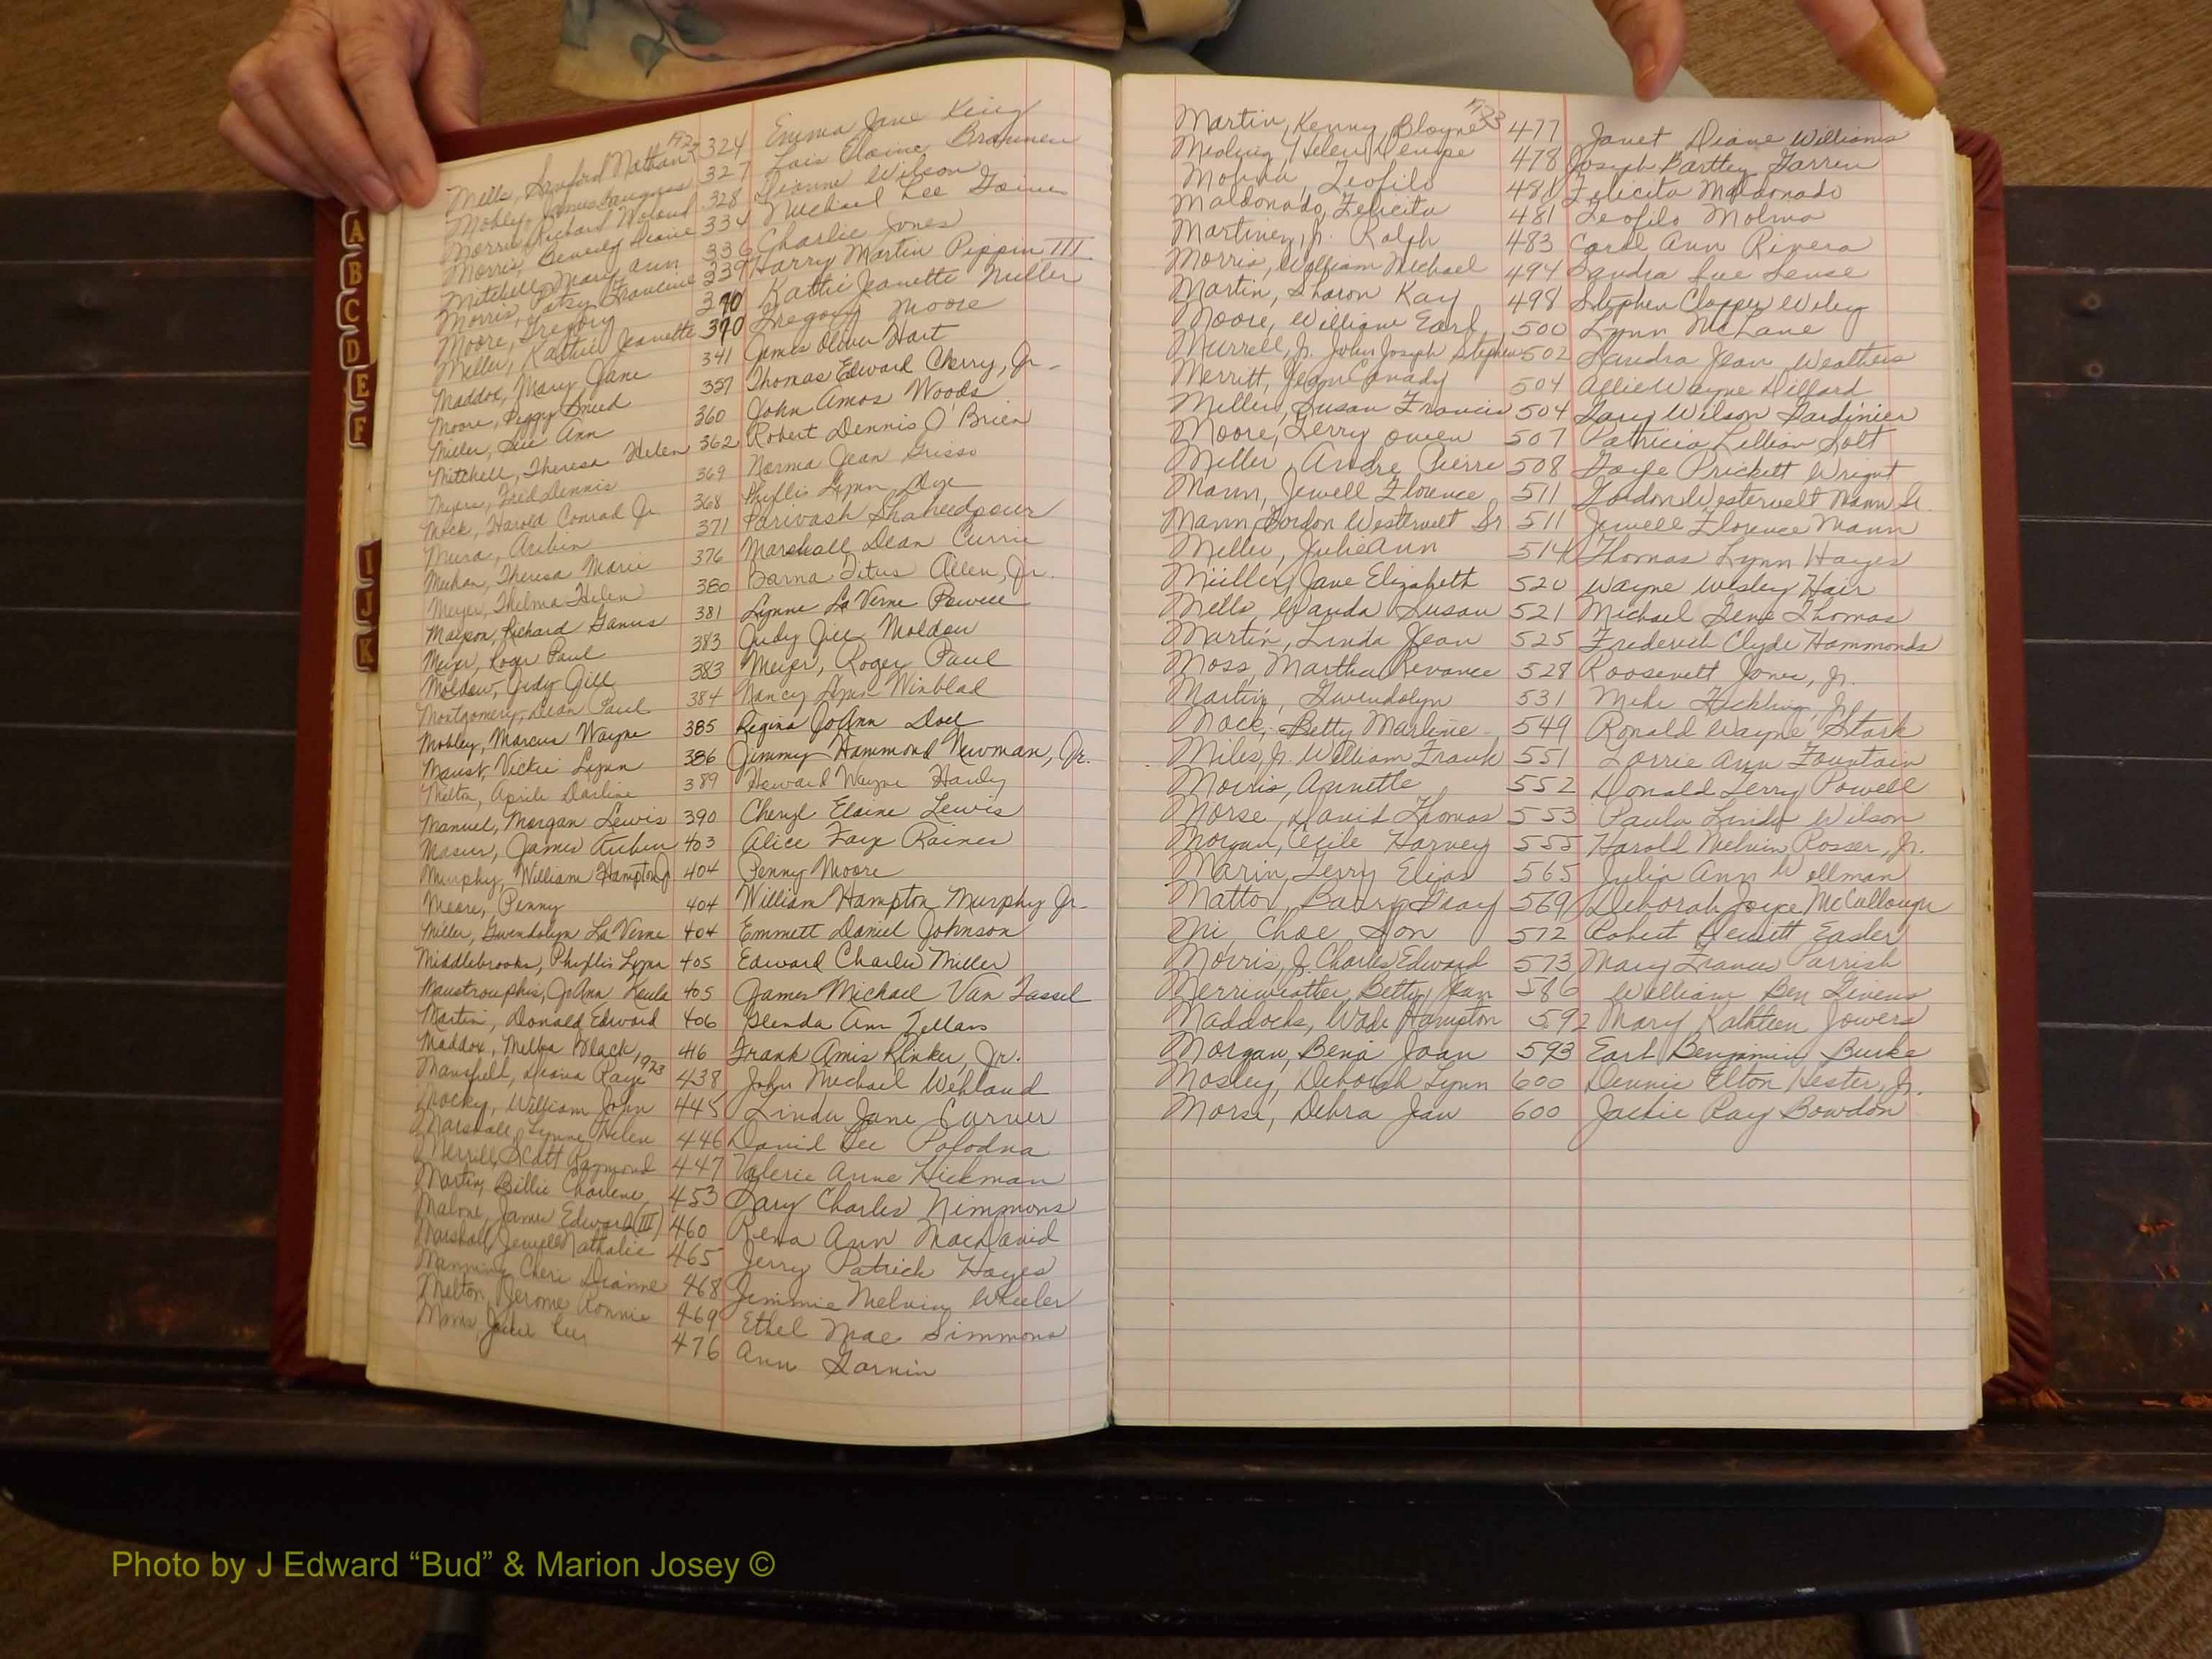 1972
Mells, Sanford Nathan 324 Emma Jane King
Mobley, James Douglas 327 Lois Elaine Brannen
Morris, Richard Woland 328 Dianne Wilson
Morris, Beverly Diane 334 Michael Lee Gaines
Mitchell, Mary Ann 336 Charlie Jones
Morris, Patsy Francine 339 Harry Martin Pippin III
Moore, Gregory 340 Kattie Jeanette Miller
Miller, Kattie Jeanette 340 Gregory Moore
Maddox, Mary Jane 341 James Oliver Hart
Moore, Peggy 357 Thomas Edward Cherry, Jr.
Miller, Sue Ann 360 John Amos Woods
Mitchell, Theresa Helen 362 Robert Dennis O'Brien
Myers, Fred Dennis 369 Norma Jean Grisso
Mock, Harold Conrad Jr 368 Phyllis Lynn Dye
371 Parivash Shaheedpour
Meehan, Theresa Marie 376 Marshall Dean Currie
Meyer, Thelma Helen 380 Barna Titus Allen, Jr.
Richard 381 Lynne LaVerne Powell
Meyer, Roger Paul 383 Judy Gill Moldow
Moldow, Judy Gill 383 Meyer, Roger Paul
Montgomery, Dean Paul 384 Nancy Lynn Winblad
Mobley, Marcus Wayne 385 Regina JoAnn
Maust, Vickie Lynn 386 Jimmy Hammond Newman, Jr.
Melton, April Darline 389 Howard Wayne
Manuel, Morgan Lewis 390 Cheryl Elaine Lewis
James 403 Alice Faye Raines
Murphy, William Hampton Jr 404 Penny Moore
Moore, Penny 404 William Hampton Murphy Jr.
Miller, Gwendolyn LaVerne 404 Emmett Daniel Johnson
Middlebrooks, Phyllis Lynn 405 Edward Charles Miller
JoAnn 405 James Michael Van Tassel
Martin, Donald Edward 406 Glenda Ann Zellars
Maddox, Melba Black 416 Frank Amis Klinker, Jr.
1973
Mansfield, Diana Raye 438 John Michael Wehland
William John 445 Linda Jane Carver
Marshall, Lynne Helen 446 David Lee Polodna
Merrill, Scott Raymond 447 Valerie Anne Hickman
Martin, Billie Charlene 453 Gary Charles Nimmons
Malone, James Edward (III) 460 Rena Ann MacDavid
Marshall, Jewell Nathalie 465 Jerry Patrick Hayes
Manning, Cheri Dianne 468 Jimmie Melvin Wheeler
Melton, Jerome Ronnie 469 Ethel Mae Simmons
Jackie Lee 476 Ann
1973
Martin, Kenny Bloyne 477 Janet Diane Williams
Helen Denise 478 Joseph Bartley Farren
Molina, Teofilo 481 Felicita Maldonado
Maldonado, Felicita 481 Teofilo Molina
Martinez, Jr. Ralph 483 Carol Ann Rivera
Morris, William Michael 494 Sandra Sue Sense
Martin, Sharon Kay 498 Stephen Clapper Wiley
Moore, William Earl 500 Lynn McLane
Murrell, Jr. John Joseph Stephen 502 Sandra Jean Weathers
Merritt, Jean Canady 504 Allie Wayne Dillard
Miller, Susan Francis 504 Gary Wilson Gardinier
Moore, Terry Owen 507 Patricia Lillian Solt
Miller, Andre Pierre 508 Faye Prickett Wright
Mann, Jewell Florence 511 Gordon Westervelt Mann Sr.
Mann, Gordon Westervelt Sr 511 Jewell Florence Mann
Miller, Julie Ann 514 Thomas Lynn Hayes
Müller, Jane Elizabeth 520 Wayne Wesley Hair
Mells Wanda Susan 521 Michael Gene Thomas
Martin, Linda Jean 525 Frederick Clyde Hammonds
Moss, Martha Revance 528 Roosevelt Jones, Jr.
Martin, Gwendolyn 531 Mike Hickling, Jr
Mock, Betty Marline 549 Ronald Wayne Stark
Miles, Jr. William Frank 551 Lorrie Ann Fountain
Morris, Annette 552 Donald Terry Powell
Morse, David Thomas 553 Paula Linda Wilson
Morgan, Cecile Harvey 555 Harold Melvin Rosser, Jr.
Marin, Terry Elias 565 Julia Ann Wellman
Mattox, Barry Gray 569 Deborah Joyce McCullough
Mi, Chae Son 572 Robert Dewitt Easler
Morris, Jr. Charles Edward 573 Mary Frances Parrish
Merriweather, Betty Jean 586 William Ben Givens
Maddocks, Wade Hampton 592 Mary Kathleen Jowers
Morgan, Bena Joan 593 Earl Benjamin Burke
Mosley, Deborah Lynn 600 Dennis Elton Hester, Jr.
Morse, Debra Jean 600 Jackie Ray Bowdon
A
B
C
D
E
F
I
J
K
Photo by J Edward “Bud” & Marion Josey ©